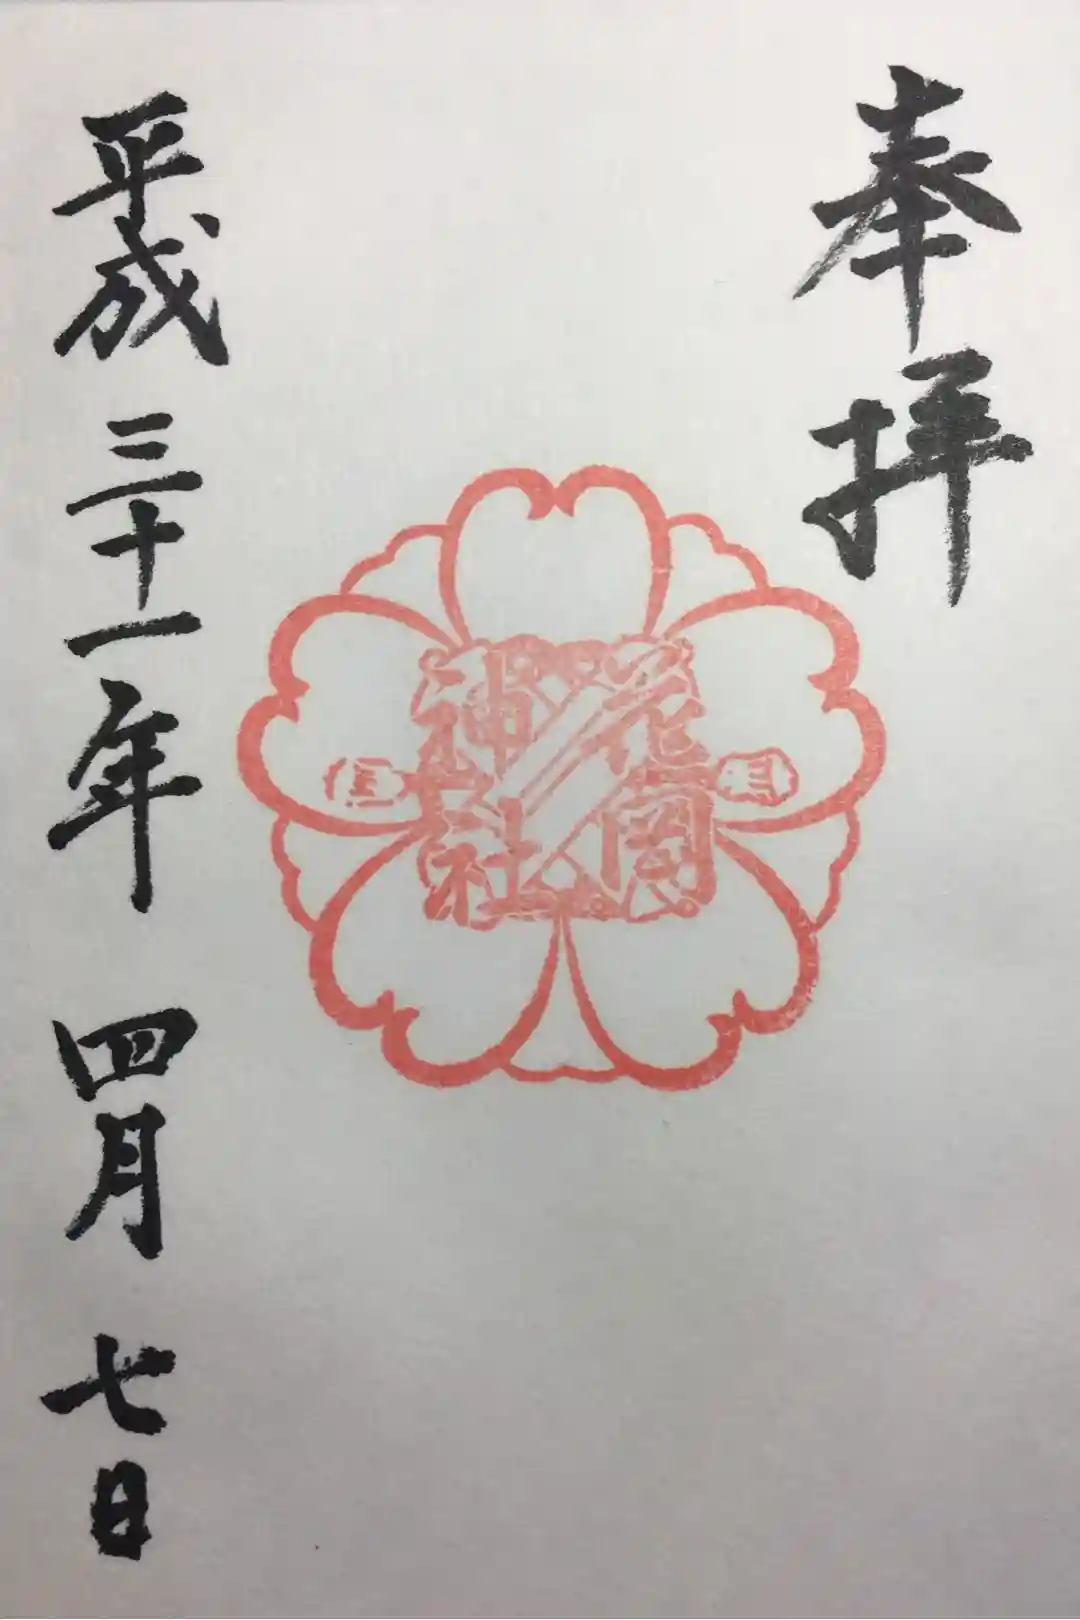 奉拝
花園
神社
平成三十一年四月七日